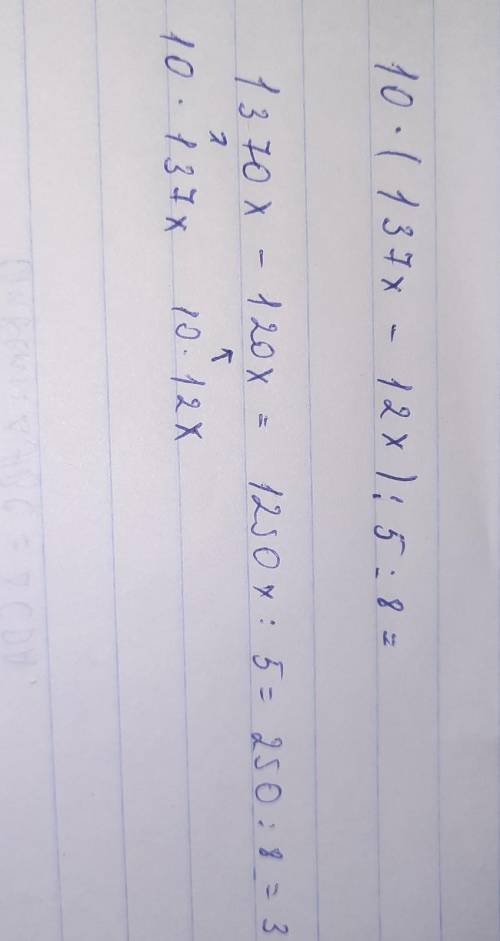 10 · (137x - 12x) : 5 : 8 =
1370x - 120x = 1250x : 5 = 250 : 8 = 3
10 · 137x 10 · 12x